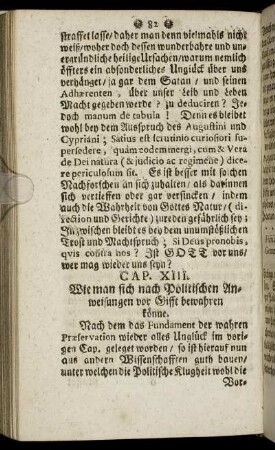 82
straffet lasse/ daher man denn vielmahls nicht
weiß/ woher doch dessen wunderbahre und un-
ergründliche heilige Ursachen/ warum nemlich
öffters ein absonderliches Unglück über uns
verhänget/ ja gar dem Satan / und seinen
Adhærenten , über unser Leib und Leben
Macht gegeben werde ? zu deduciren ? Je-
doch manum de tabula ! Denn es bleibet
wohl bey dem Ausspruch des Augustini und
Cypriani ; Satius est scrutinio curiosiori su-
persedere, quàm eodem mergi, cum & Vera
de Dei natura ( & judicio ac regimene) dice-
re periculosum sit. Es ist besser mit solchen
Nachforschen an sich zuhalten/ als darinnen
sich vertieffen oder gar versincken / indem
auch die Wahrheit von Gottes Natur / ( di-
rection und Gerichte ) zu reden gefährlich sey ;
Inzwischen bleibet es bey dem unumstößlichen
Trost und Machtspruch ; Si Deus pro nobis,
qvis contra nos ? Ist GOTT vor uns/
wer mag wieder uns seyn?
CAP. XIII.
Wie man sich nach Politischen An-
weisungen vor Gifft bewahren
könne.
Nach dem das Fundament der wahren
Præservation wieder alles Unglück im vori-
gen Cap. geleget worden / so ist hierauf nun
aus andern Wissenschafften guth bauen/
unter welchen die Politische Klugheit wohl die
Vor-